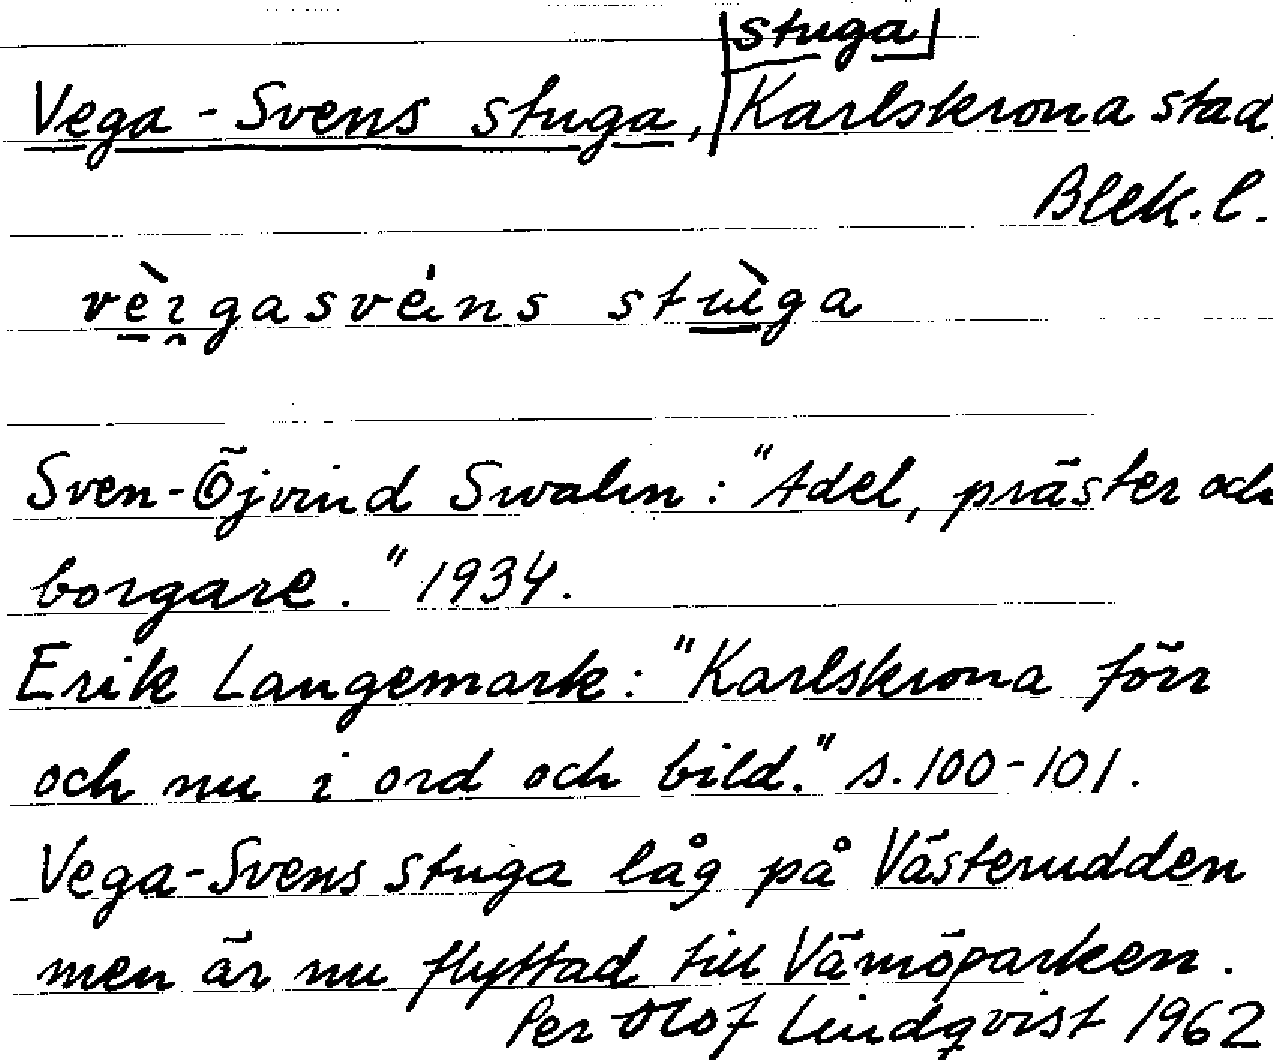 stuga
Vega-Svens stuga, Karlskrona stad
Blek.l.
stuga
Sven-Öjvind Swahn: "Adel, präster och
borgare." 1934.
Erik Langemark: "Karlskrona förr
och nu i ord och bild." s. 100-101.
Vega-Svens stuga låg på Västerudden
men är nu flyttad till Vämöparken.
Per Olof Lindqvist 1962